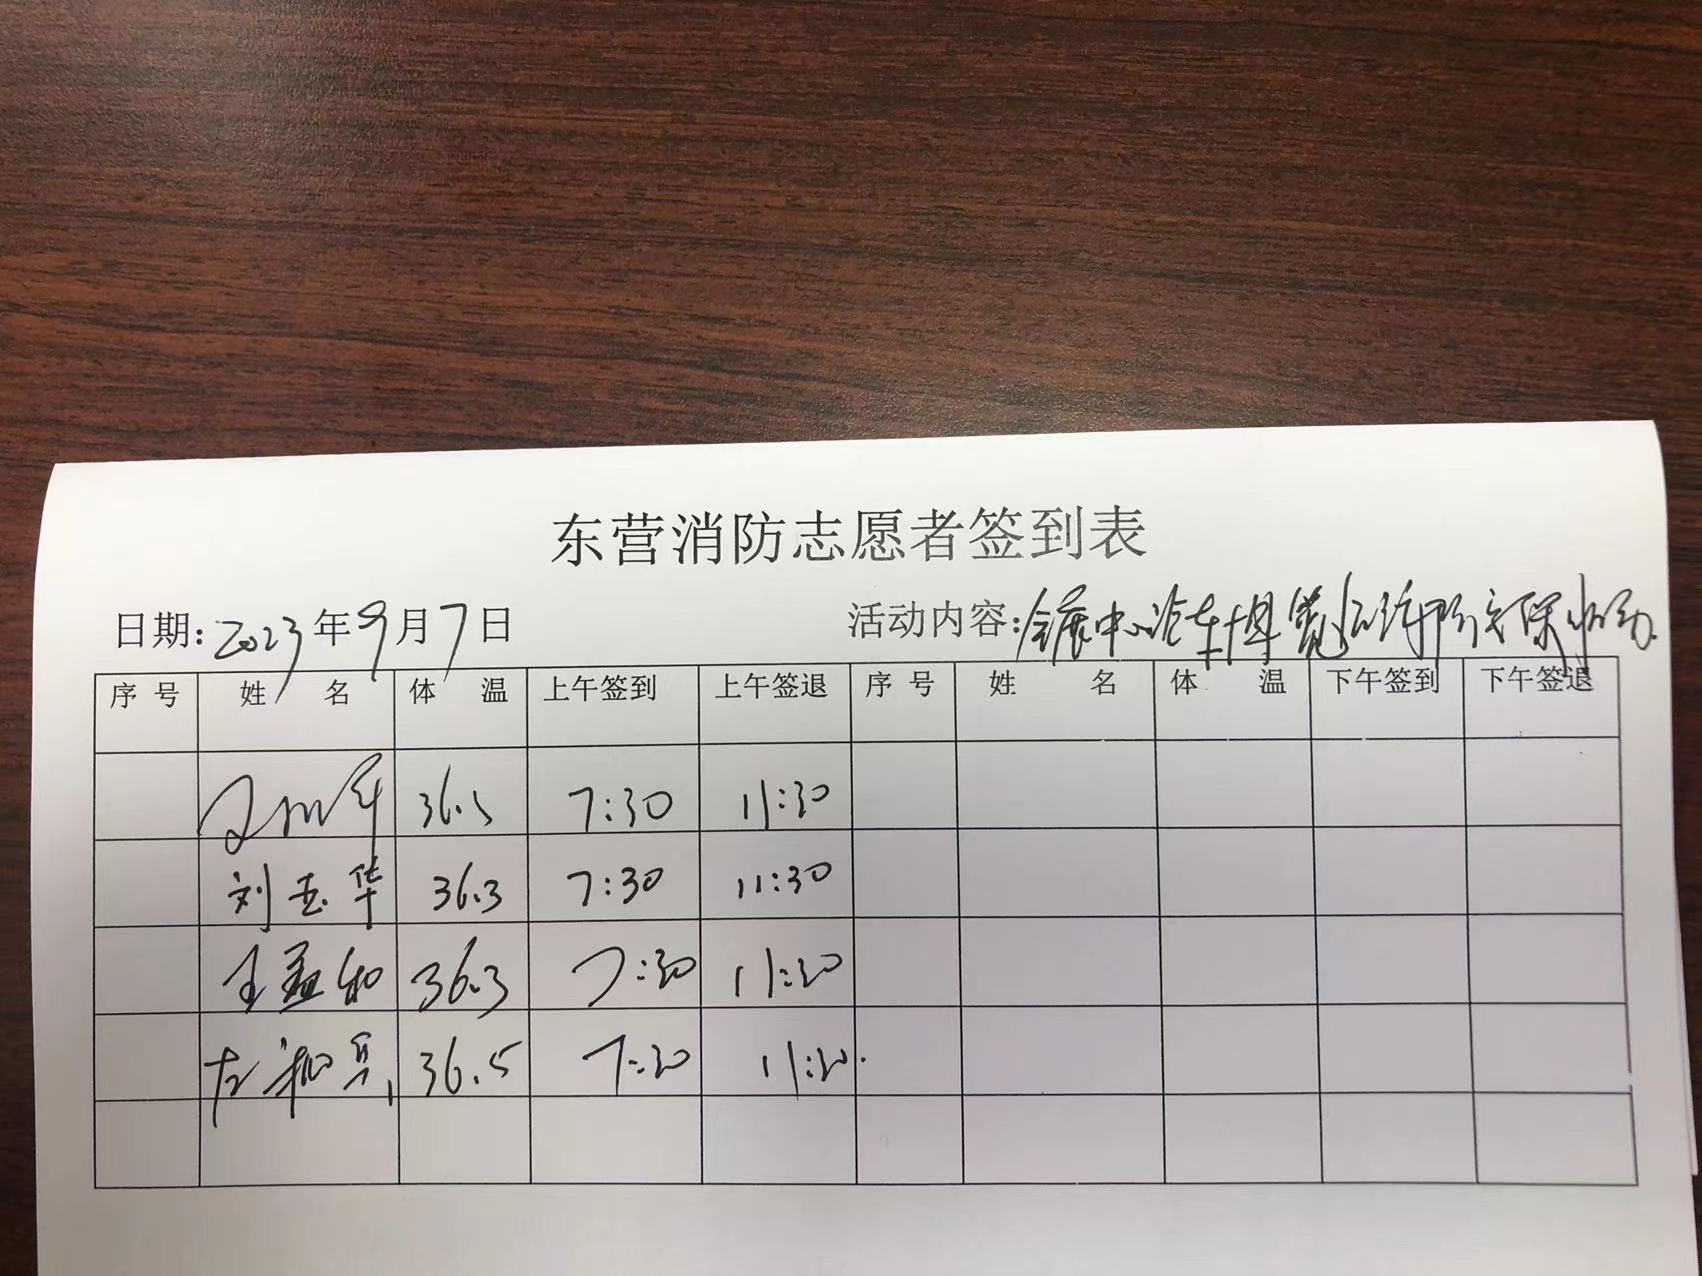 东营消防志愿者签到表
日期:2023年9月7日 活动内容:会展中心汽车博览会消防安保活动
序号 姓名 体温 上午签到 上午签退 序号 姓名 体温 下午签到 下午签退
36.5 7:30 11:30
刘玉华 36.3 7:30 11:30
王孟和 36.3 7:30 11:30
36.5 7:30 11:30